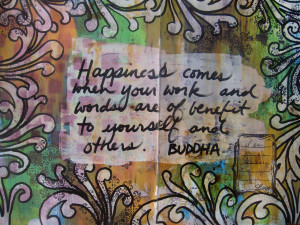 Happiness comes
when your work and
words are of benefit
to yourself and
others. BUDDHA